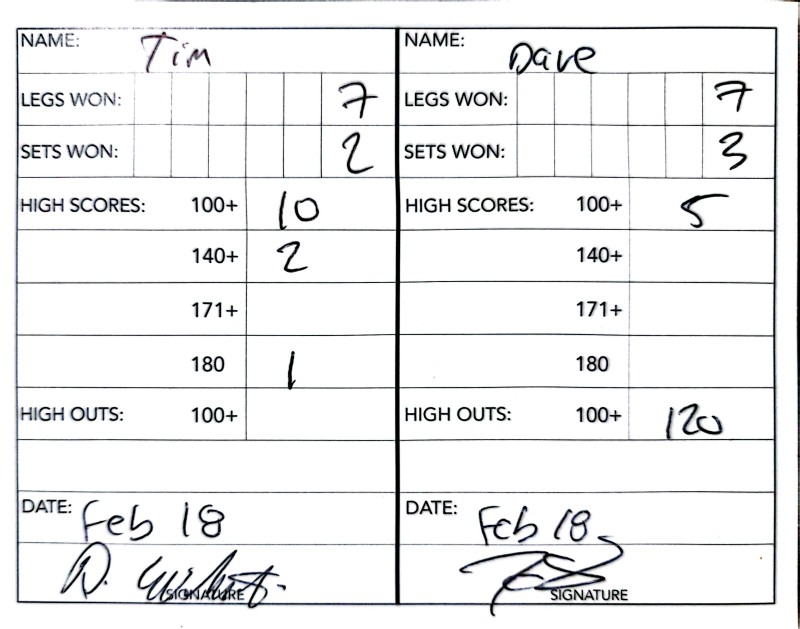 NAME: Tim
LEGS WON: 7
SETS WON: 2
HIGH SCORES: 100+ 10
140+ 2
171+
180 1
HIGH OUTS: 100+
DATE: Feb 18
SIGNATURE
NAME: Dave
LEGS WON: 7
SETS WON: 3
HIGH SCORES: 100+ 5
140+
171+
180
HIGH OUTS: 100+ 120
DATE: Feb 18
SIGNATURE